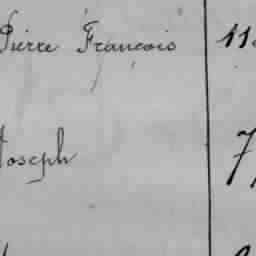 Pierre François 11
Joseph 7